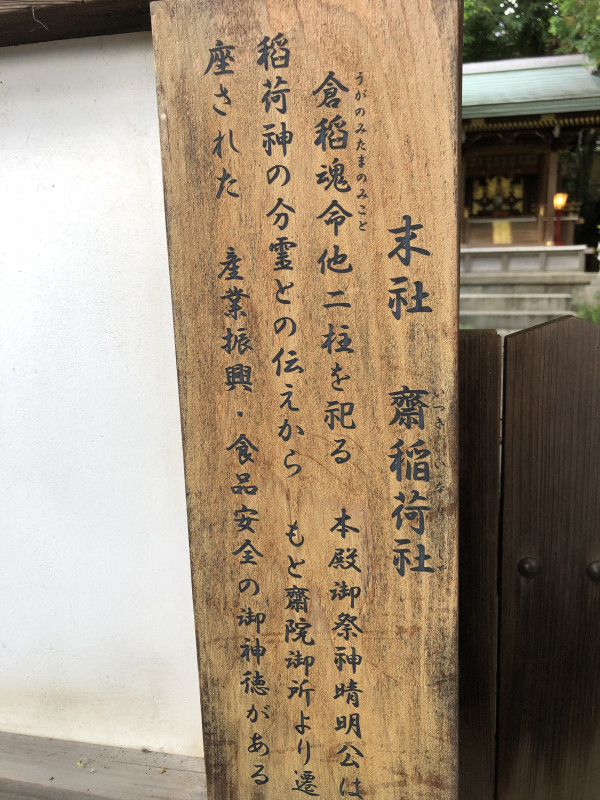 末社 齋稲荷社
倉稲魂命他二柱を祀る 本殿御祭神晴明公は
うがのみたまのみこと
稲荷神の分霊との伝えから もと齋院御所より遷
座された 産業振興・食品安全の御神徳がある